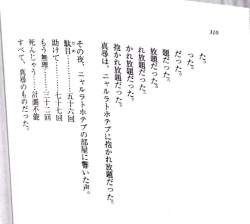 310
た。
った。
だった。
題だった。
放題だった。
れ放題だった。
かれ放題だった。
抱かれ放題だった。
真尋は、ニャルラトホテプに抱かれ放題だった。
その夜、ニャルラトホテプの部屋に響いた声。
駄目………五十六回
助けて………七十七回
もう無理………三十二回
死んじゃう………計測不能
すべて、真尋のものだった。